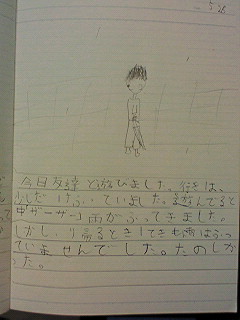 今日友達と遊びました。行きは、
少しだけふっていました。遊んでると
中「ザーザー」雨がふってきました。
しかし、り帰るときしてきも雨はふっ
ていませんでした。たのしか
った。